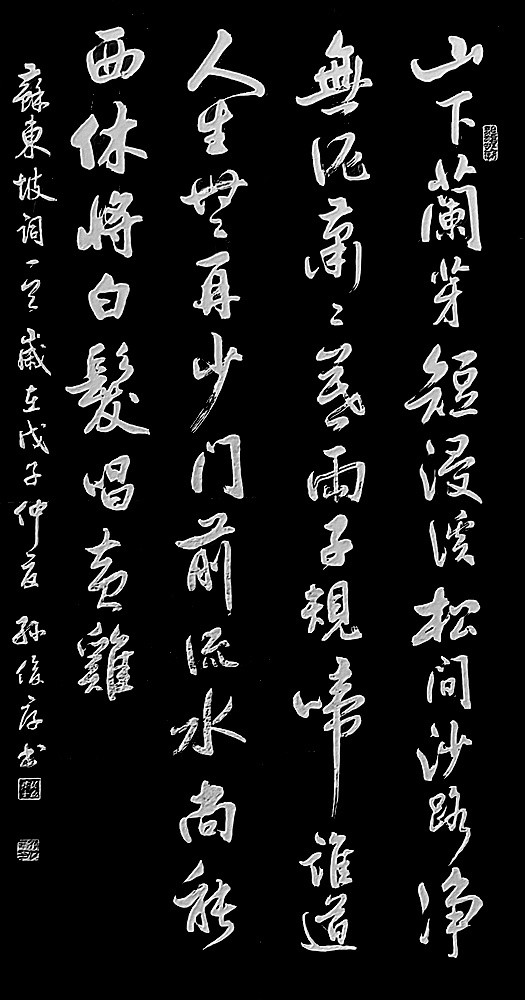 山下蘭芽短浸溪松間沙路净
無泥蕭〻暮雨子規啼誰道
人生無再少门前流水尚能
西休將白髮唱黄雞
蘇東坡詞一首歲在戊子仲夏孫俊存书